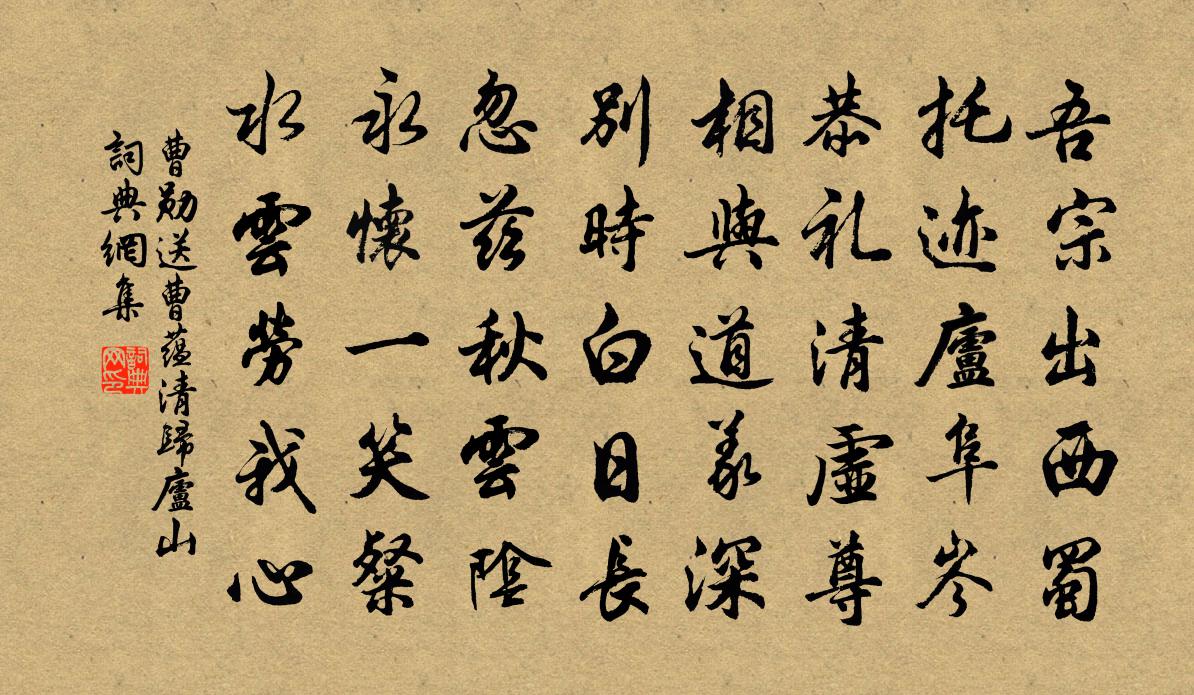 吾宗出西蜀
托迹廬阜岑
恭礼清虛尊
相與道義深
別時白日長
忽茲秋雲陰
永懷一笑粲
水雲勞我心
曹勛送曹蘊清歸廬山
詞典網集
詞典网印